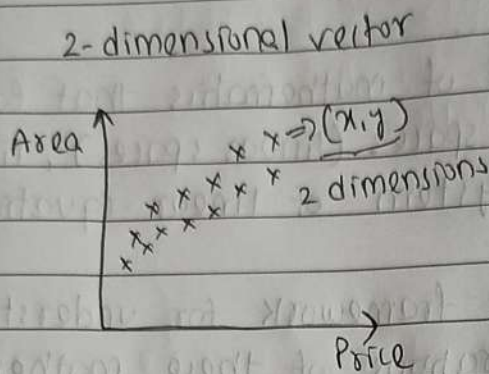 2-dimensional vector
Area
x => (x,y)
2 dimensions
Price